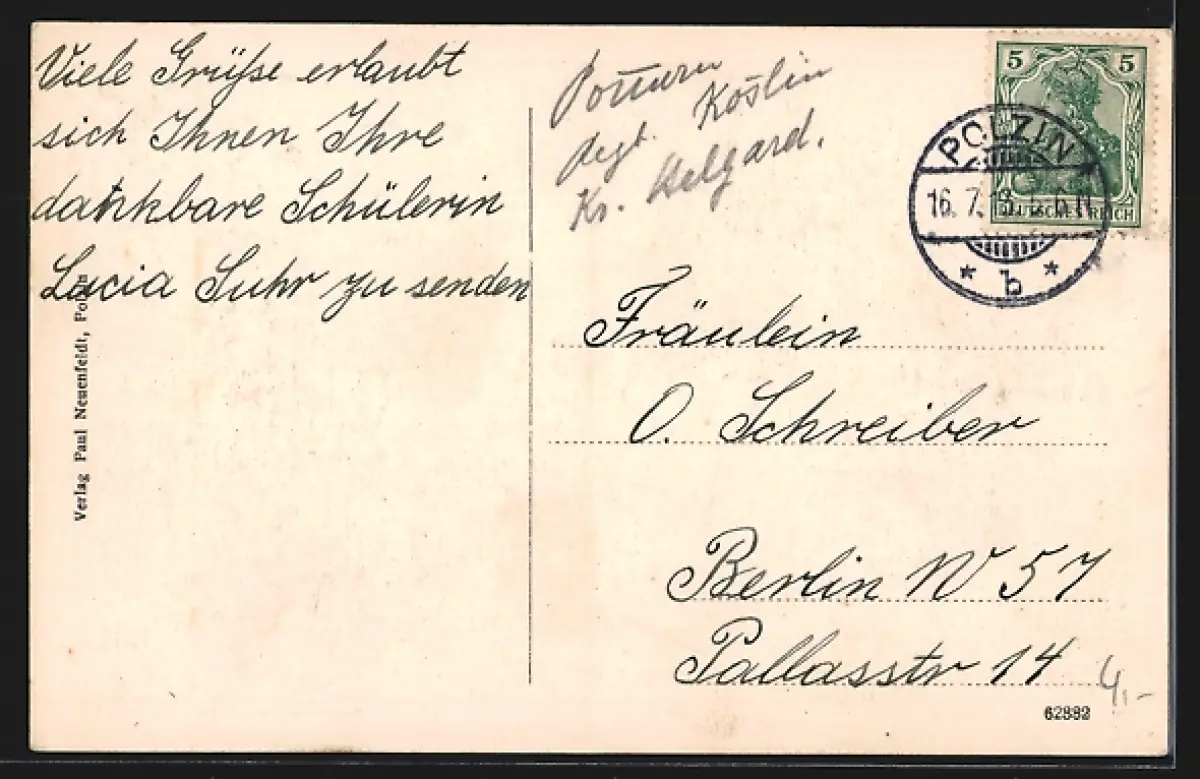 Viele Grüße erlaubt
sich Ihnen Ihre
dankbare Schülerin
Lucia Suhr zu senden
Verlag Paul Neuenfeldt, Polzin
Pommern
Regb. Köslin
Kr. Belgard.
5 5
DEUTSCHES REICH
POLZIN
16. 7. 13.
* b *
Fräulein
O. Schreiber
Berlin W 57
Pallasstr 14
4,-
62882